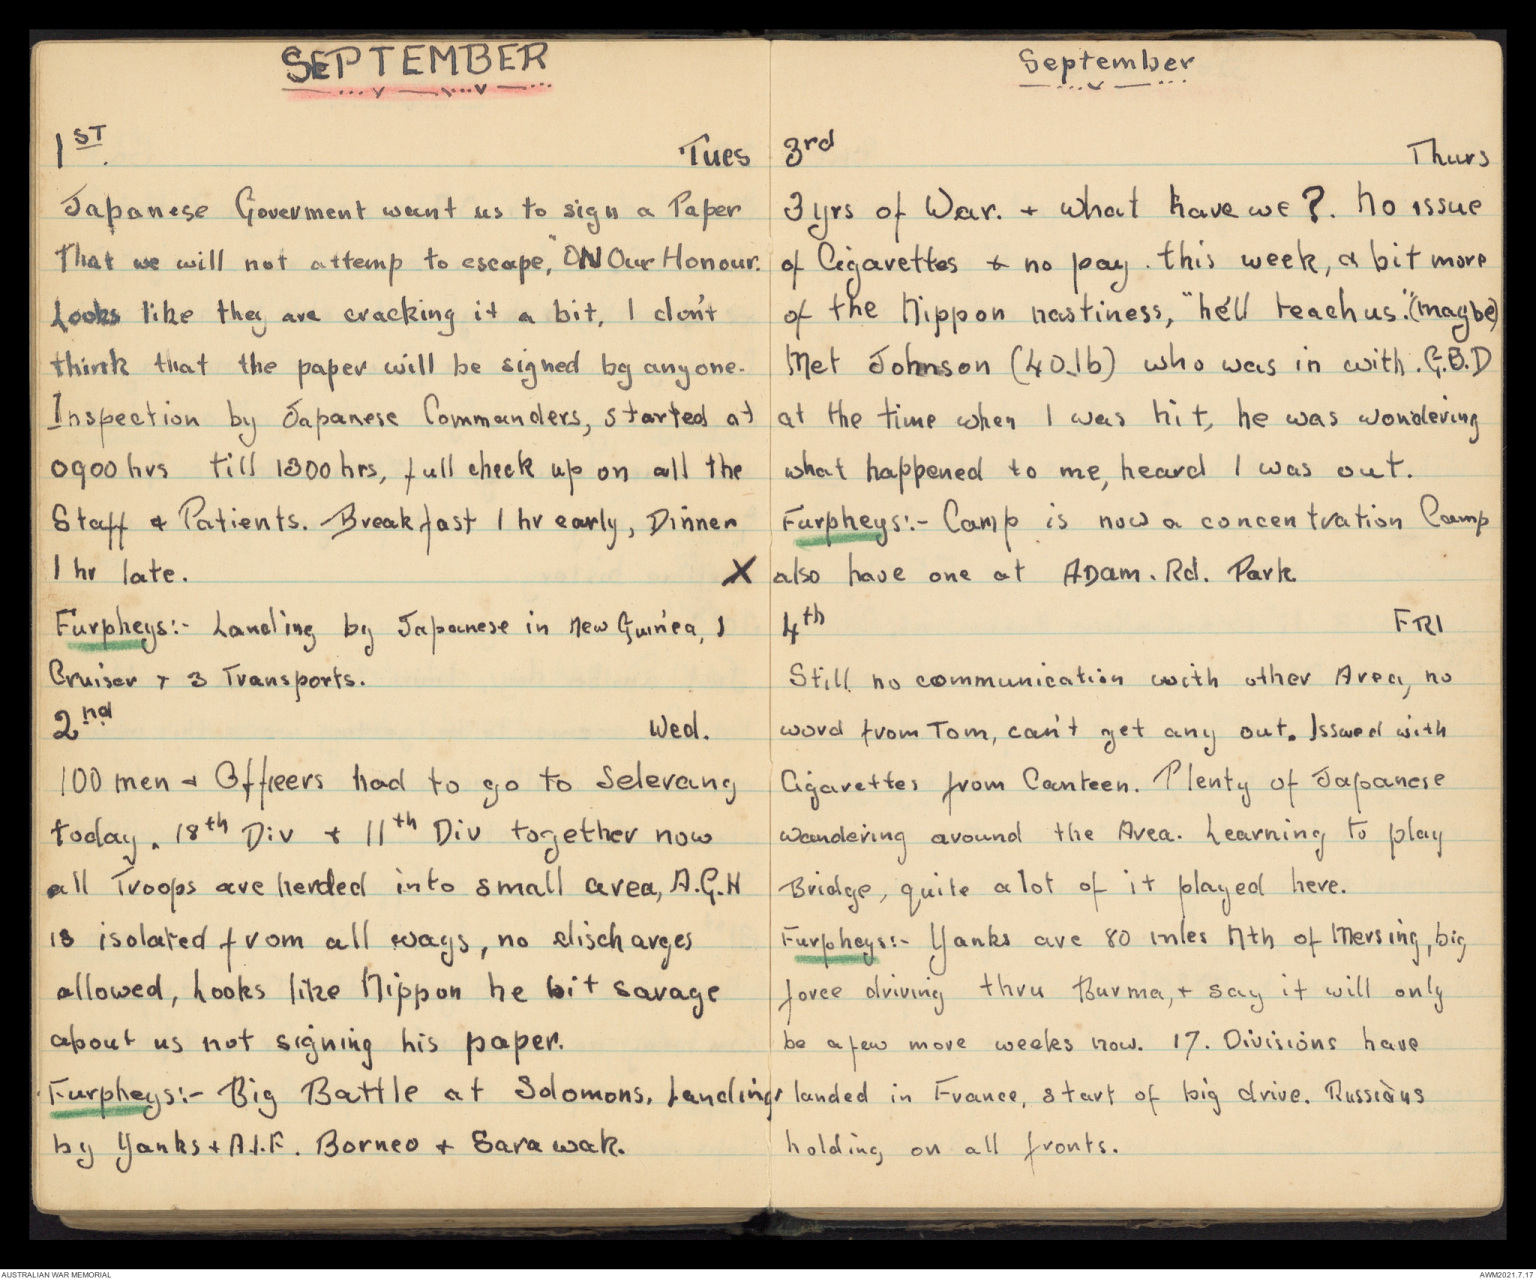 SEPTEMBER
1ST. Tues
Japanese Goverment want us to sign a Paper
That we will not attemp to escape, "ON Our Honour.
Looks like they are cracking it a bit, I don't
think that the paper will be signed by anyone.
Inspection by Japanese Commanders, started at
0900 hrs till 1300 hrs, full check up on all the
Staff & Patients. Breakfast 1 hr early, Dinner
1 hr late. X
Furpheys:- Landing by Japanese in New Guinea, 1
Cruiser + 3 Transports.
2nd Wed.
100 men + Officers had to go to Selerang
today. 18th Div + 11th Div together now
all Troops are herded into small area, A.G.H
is isolated from all ways, no discharges
allowed, Looks like Nippon he bit savage
about us not signing his paper.
Furpheys:- Big Battle at Solomons. Landings
by Yanks + A.I.F. Borneo + Sarawak.
September
3rd Thurs
3 yrs of War. + what have we?. No issue
of Cigarettes & no pay. this week, a bit more
of the Nippon nastiness, "he'll teach us". (maybe)
Met Johnson (40.lb) who was in with. G.B.D
at the time when I was hit, he was wondering
what happened to me, heard I was out.
Furpheys:- Camp is now a concentration Camp
also have one at ADam. Rd. Park.
4th FRI
Still no communication with other Area, no
word from Tom, can't get any out. Issued with
Cigarettes from Canteen. Plenty of Japanese
wandering around the Area. Learning to play
Bridge, quite a lot of it played here.
Furpheys:- Yanks are 80 miles Nth of Mersing, big
force driving thru Burma, + say it will only
be a few more weeks now. 17. Divisions have
landed in France, start of big drive. Russians
holding on all fronts.
AUSTRALIAN WAR MEMORIAL
AWM2021.7.17